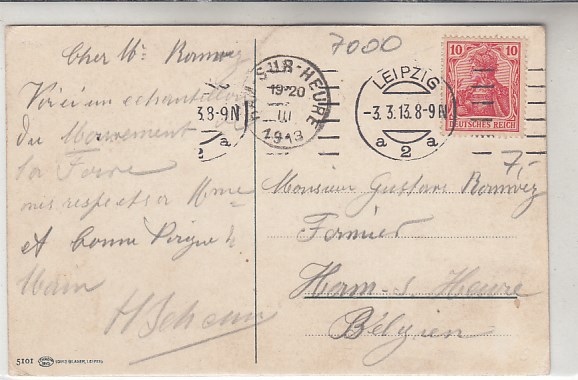 7000
Cher Mr Romvez
Voici un échantillon
du Mouvement
la Foire
mes respects a Mme
et bonne Poigne de
Main
H Schou
HAM-SUR-HEURE
19-20
III
1913
LEIPZIG
-3.3.13.8-9N
a 2 a
3.8-9N
a
10 10
DEUTSCHES REICH
7,-
Monsieur Gustave Romvez
Fermier
Ham-s. Heure
Belgien
5101